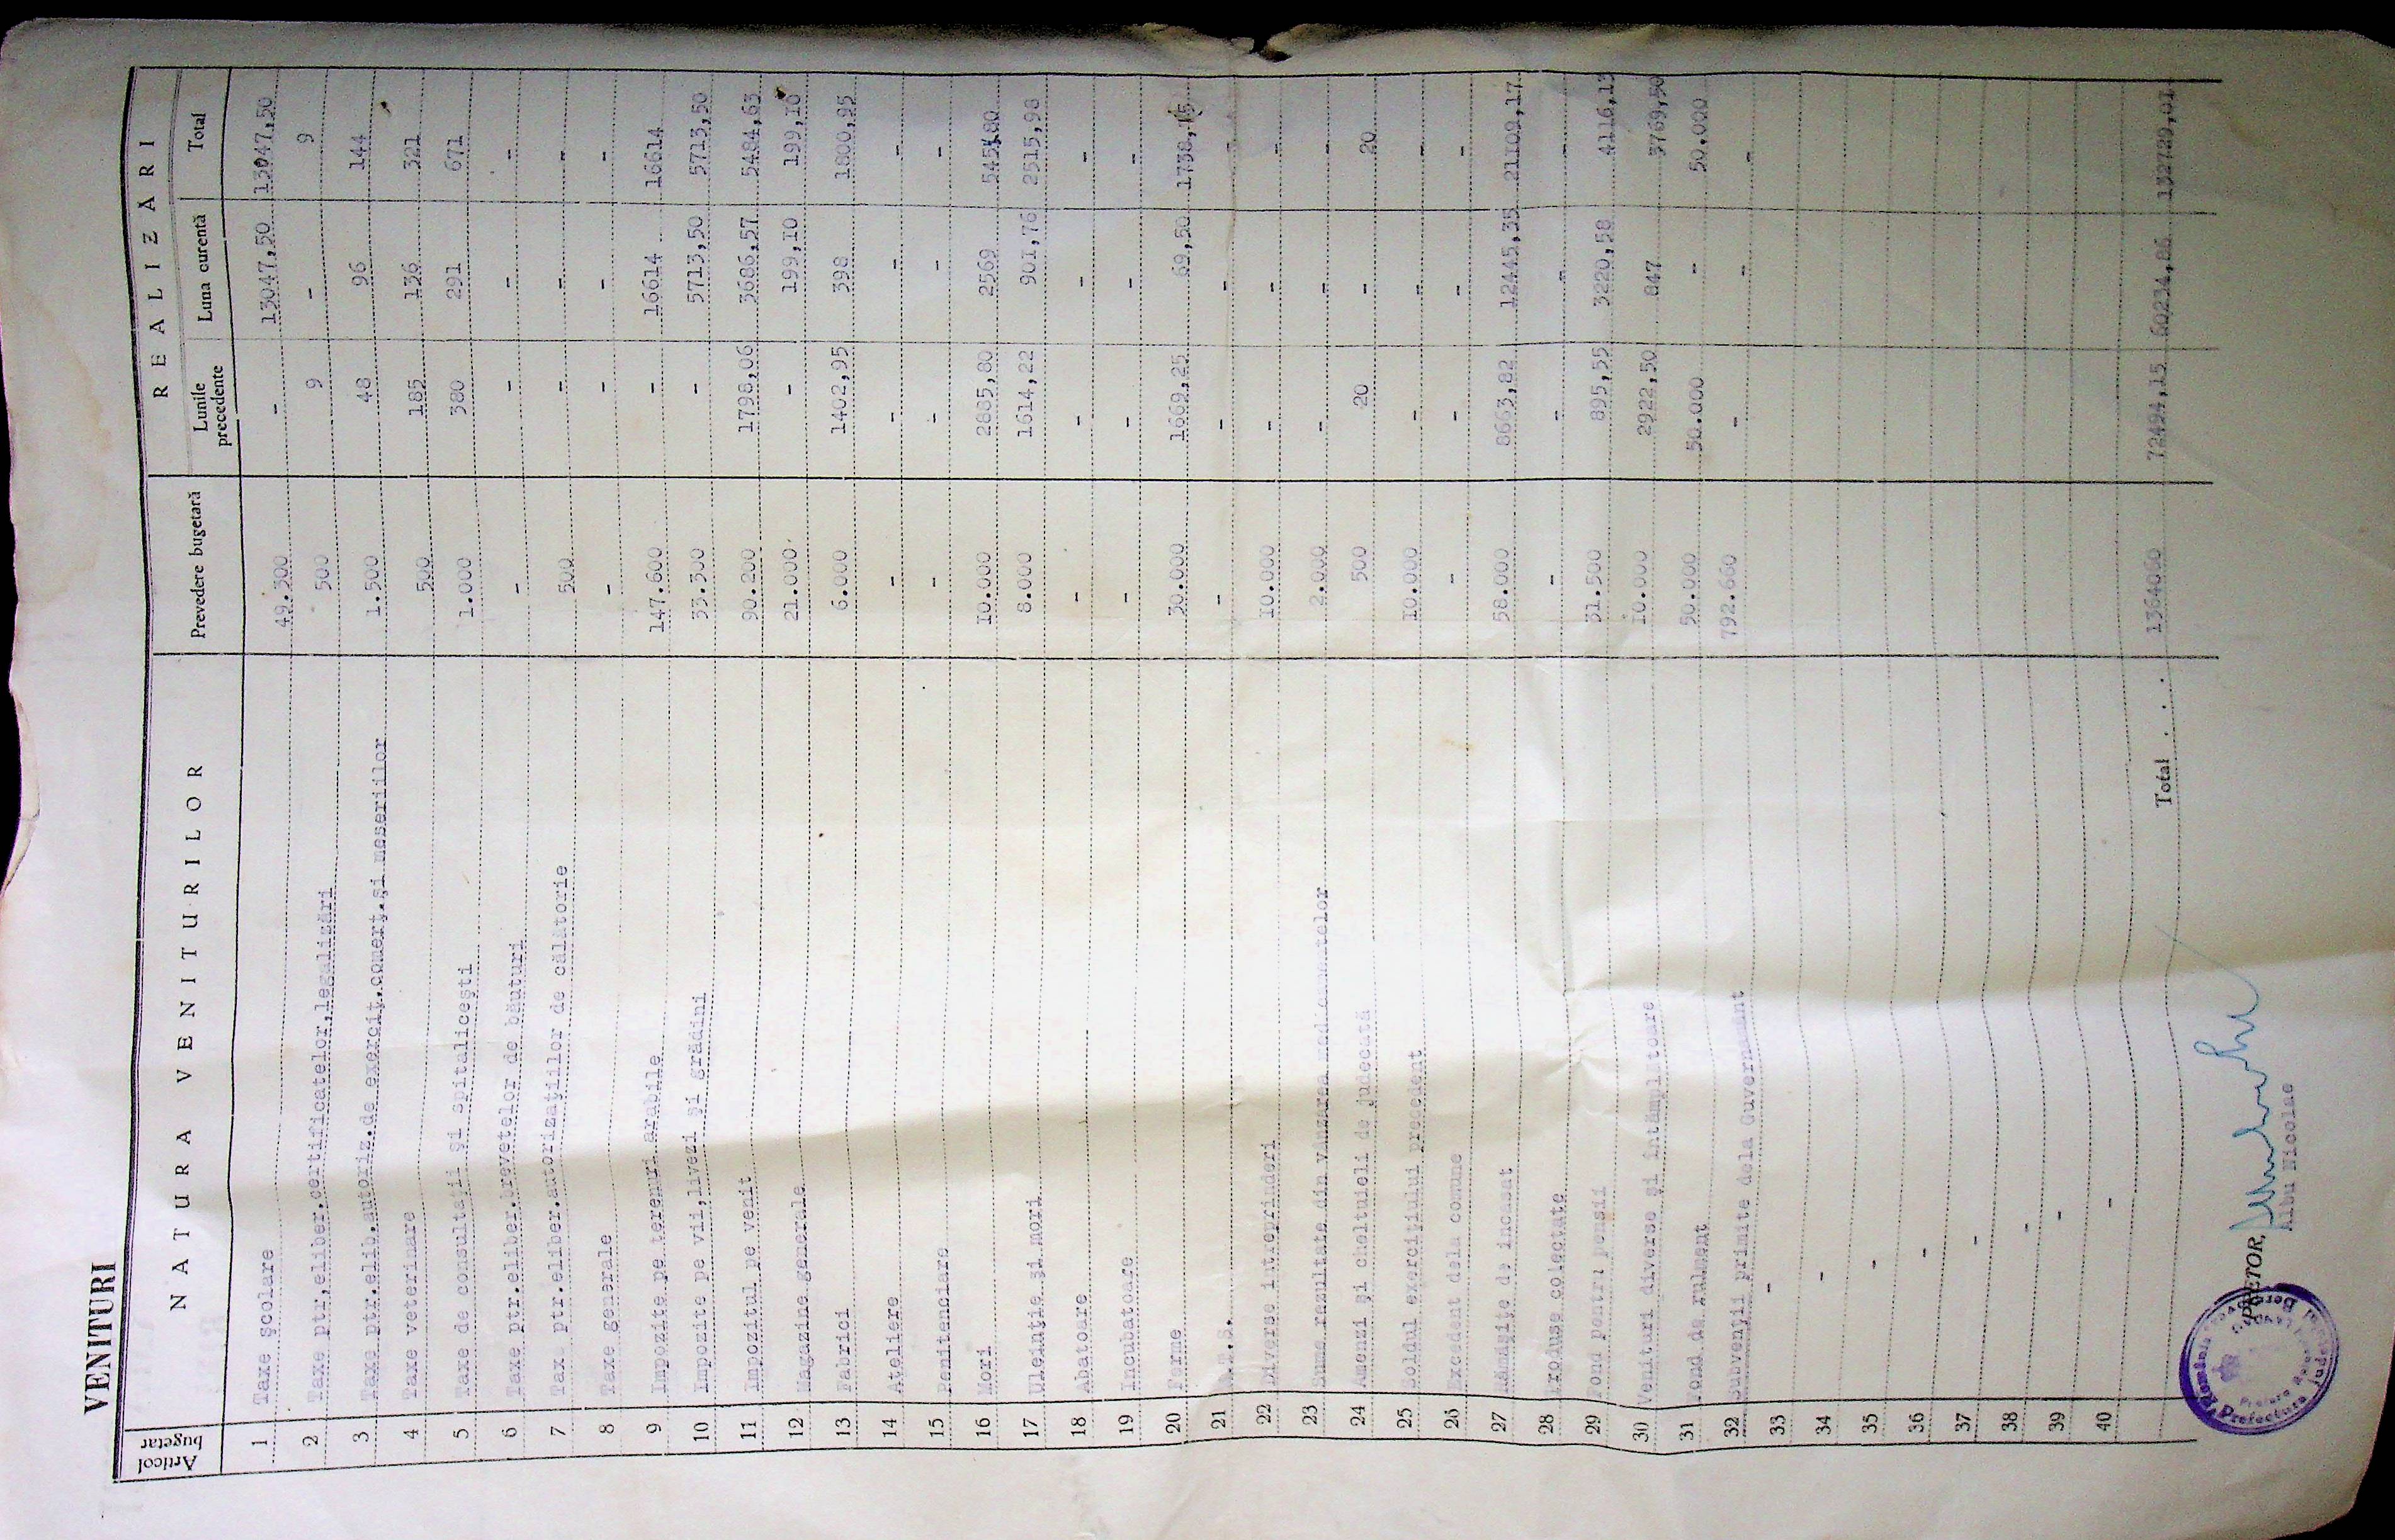 VENITURI
Articol bugetar | NATURA VENITURILOR | Prevedere bugetară | REALIZĂRI
Lunile precedente | Luna curentă | Total
1 Taxe şcolare 49.300 - 13047,50 13047,50
2 Taxe ptr.eliber.certificatelor,legalizări 500 9 - 9
3 Taxe ptr.elib.autoriz.de exerciţ.comerţ.şi meseriilor 1.500 48 96 144
4 Taxe veterinare 500 185 136 321
5 Taxe de consultaţii şi spitaliceşti 1.000 380 291 671
6 Taxe ptr.eliber.brevetelor de băuturi - - - -
7 Taxe ptr.eliber.autorizaţiilor de călatorie 500 - - -
8 Taxe generale - - - -
9 Impozite pe terenuri arabile 147.600 - 16614 16614
10 Impozite pe vii,livezi şi grădini 33.300 - 5713,50 5713,50
11 Impozitul pe venit 90.200 1798,06 3686,57 5484,63
12 Magazine generale 21.000 - 199,10 199,10
13 Fabrici 6.000 1402,95 398 1800,95
14 Ateliere - - - -
15 Penitenciare - - - -
16 Mori 10.000 2885,80 2569 5454,80
17 Uleinţie şi mori 8.000 1614,22 901,76 2515,98
18 Abatoare - - - -
19 Incubatoare - - - -
20 Ferme 30.000 1669,25 69,50 1738,75
21 - - - -
22 Diverse intreprinderi 10.000 - - -
23 Sume rezultate din vânzarea medicamentelor 2.000 - - -
24 Amenzi şi cheltuieli de judecată 500 20 - 20
25 Soldul exerciţiului precedent 10.000 - - -
26 Excedent dela comune - - - -
27 Rămăşiţe de incasat 58.000 8663,82 12445,35 21109,17
28 Produse colectate - - - -
29 Fond pentru pensii 31.500 895,55 3220,58 4116,13
30 Venituri diverse şi întâmplătoare 10.000 2922,50 847 3769,50
31 Fond de rulment 50.000 50.000 - 50.000
32 Subvenţii primite dela Guvernamânt 792.660 - - -
33 -
34 -
35 -
36 -
37 -
38 -
39 -
40 -
Total . . . 1364060 72494,15 60234,86 132729,01
PRETOR,
Albu Nicolae